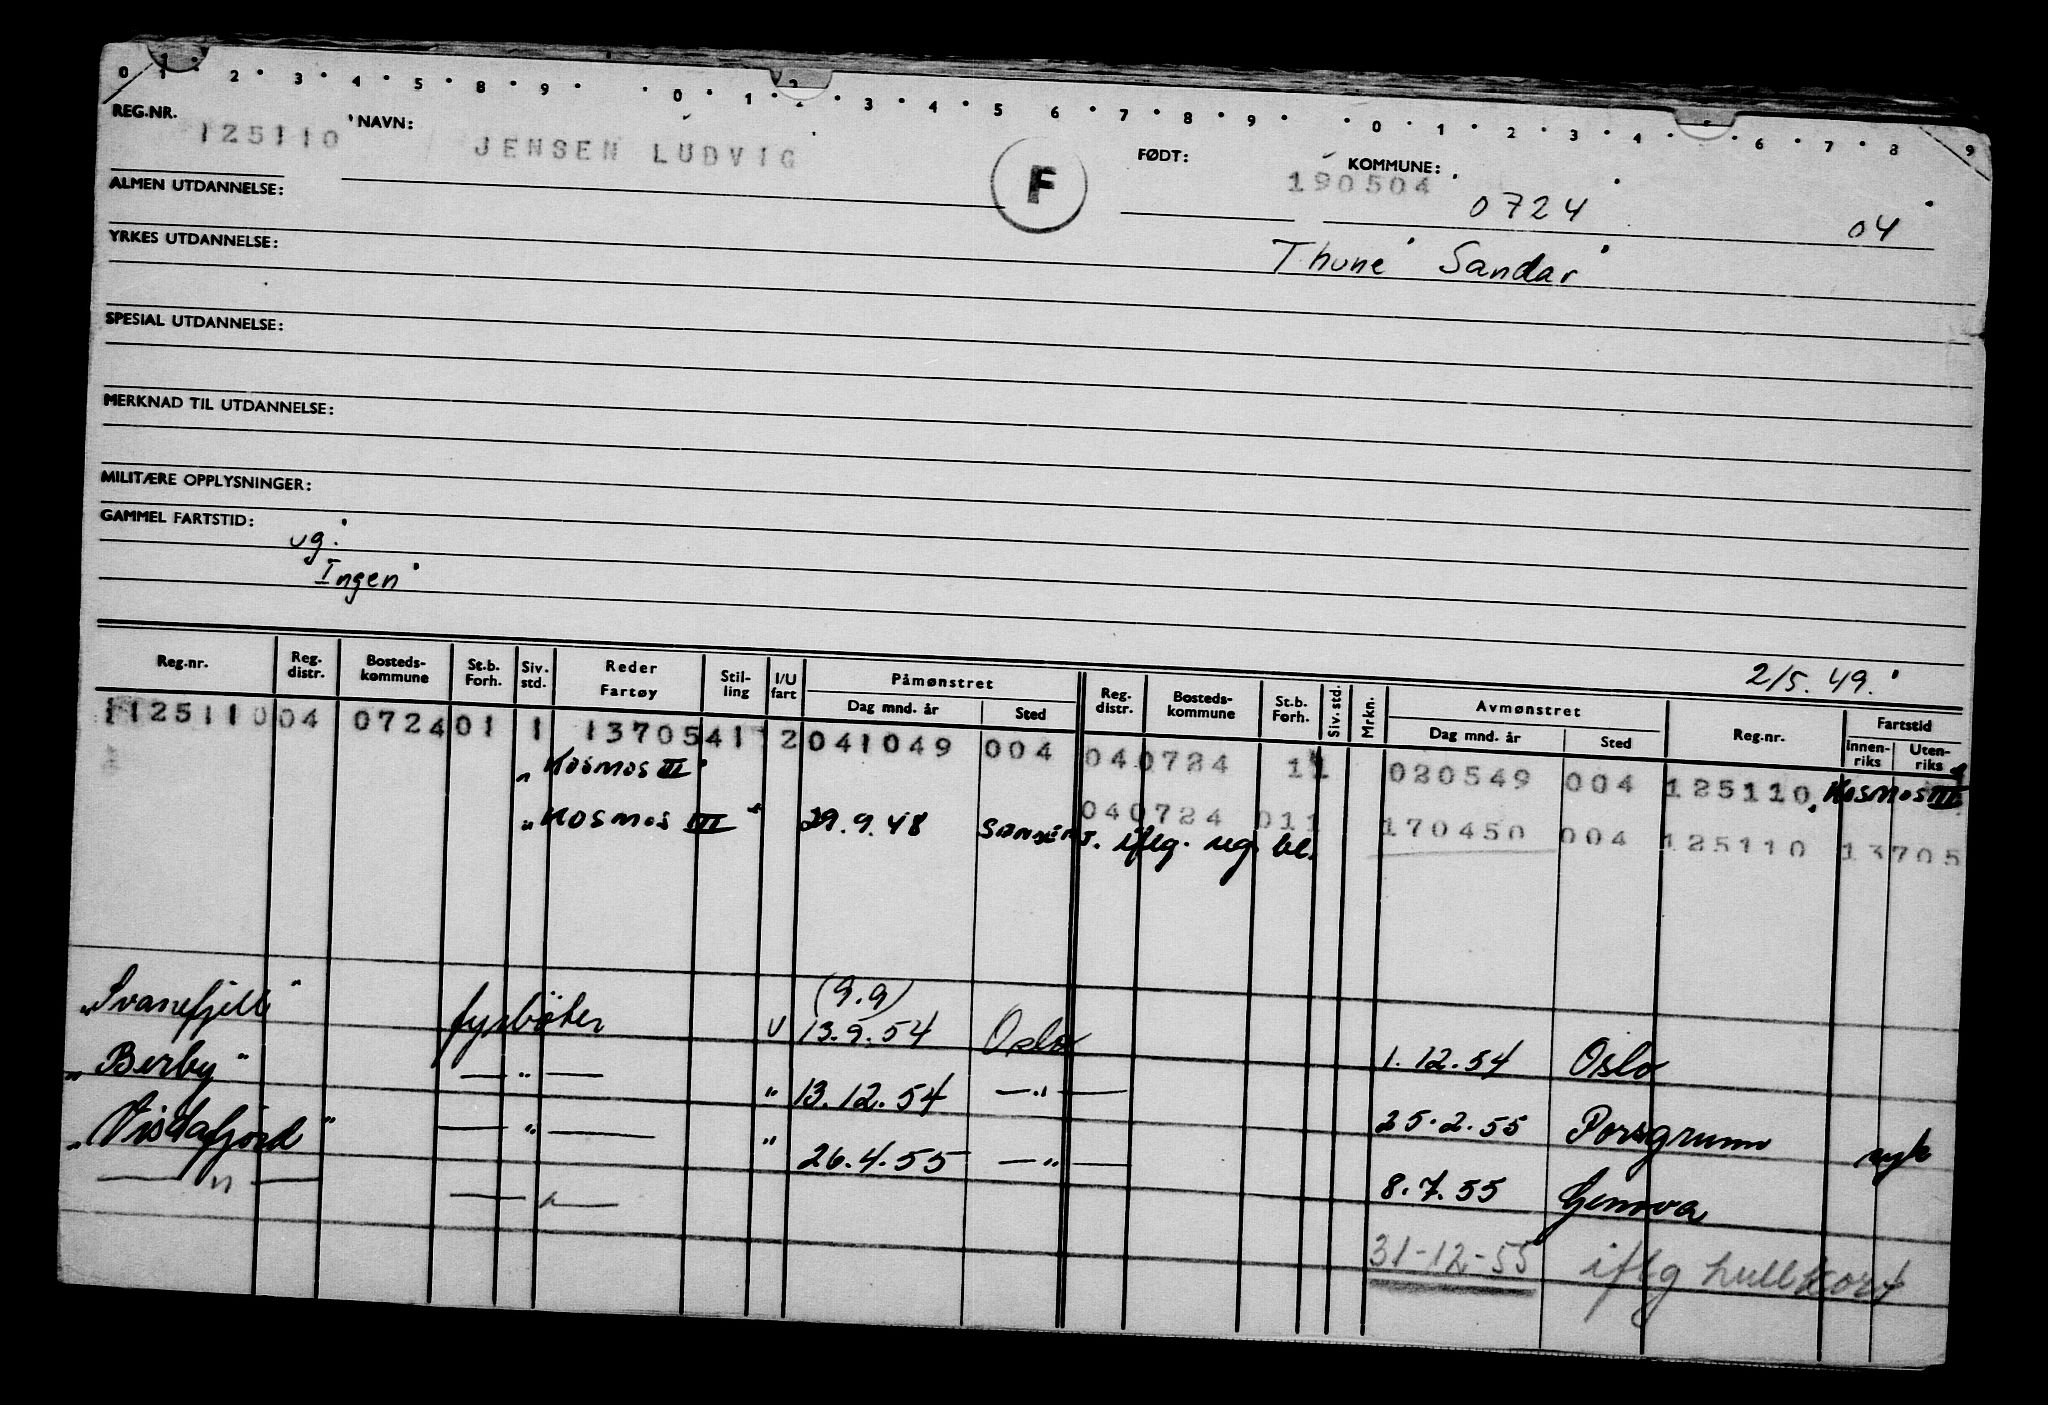 0 1 2 3 4 5 8 9 0 1 2 3 4 5 6 7 8 9 0 1 2 3 4 5 6 7 8 9
REG.NR. 125110 NAVN: JENSEN LUDVIG F FØDT: 190504 KOMMUNE: 0724 04
ALMEN UTDANNELSE:
Thune Sandar
YRKES UTDANNELSE:
SPESIAL UTDANNELSE:
MERKNAD TIL UTDANNELSE:
MILITÆRE OPPLYSNINGER:
GAMMEL FARTSTID: ug.
Ingen
2/5.49.
Reg.nr. Reg. distr. Bosteds-kommune St.b. Forh. Siv. std. Reder Fartøy Stil-ling I/U fart Påmønstret Dag mnd. år Sted Reg. distr. Bosteds-kommune St.b. Forh. Siv. std. Mrkn. Avmønstret Dag mnd. år Sted Reg.nr. Fartstid Innen-riks Uten-riks
125110 04 0724 01 1 13705 41 2 041049 004 04 0724 11 020549 004 125110 "Kosmos III"
"Kosmos III"
"Kosmos III" 29.9.48 040724 011 170450 004 125110 13705
iflg. ug. bl.
"Svanefjell" fyrbøter U (9.9) 13.9.54 Oslo 1.12.54 Oslo
"Berby" — " — " 13.12.54 — " — 25.2.55 Porsgrunn
"Vistafjord" — " — " 26.4.55 — " — 8.7.55 Genova syk
— " — — " — 31-12-55 iflg hullkort